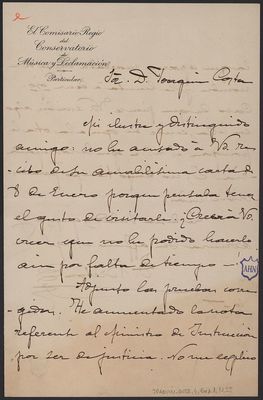 El Comisario Regio
del
Conservatorio
de
Música y Declamación
Particular.
Sr. D. Joaquin Costa
Mi ilustre y distinguido
amigo: no he acusado á Vd. re-
cibo de su amabilisima carta de
8 de Enero porque pensaba tener
el gusto de visitarle. ¿Creerá Vd.
creer que no he podido hacerlo
aun por falta de tiempo
Adjunto las pruebas corre-
gidas. He aumentado la nota
referente al Ministro de Instrucción
por ser de justicia. No me explico
AHN